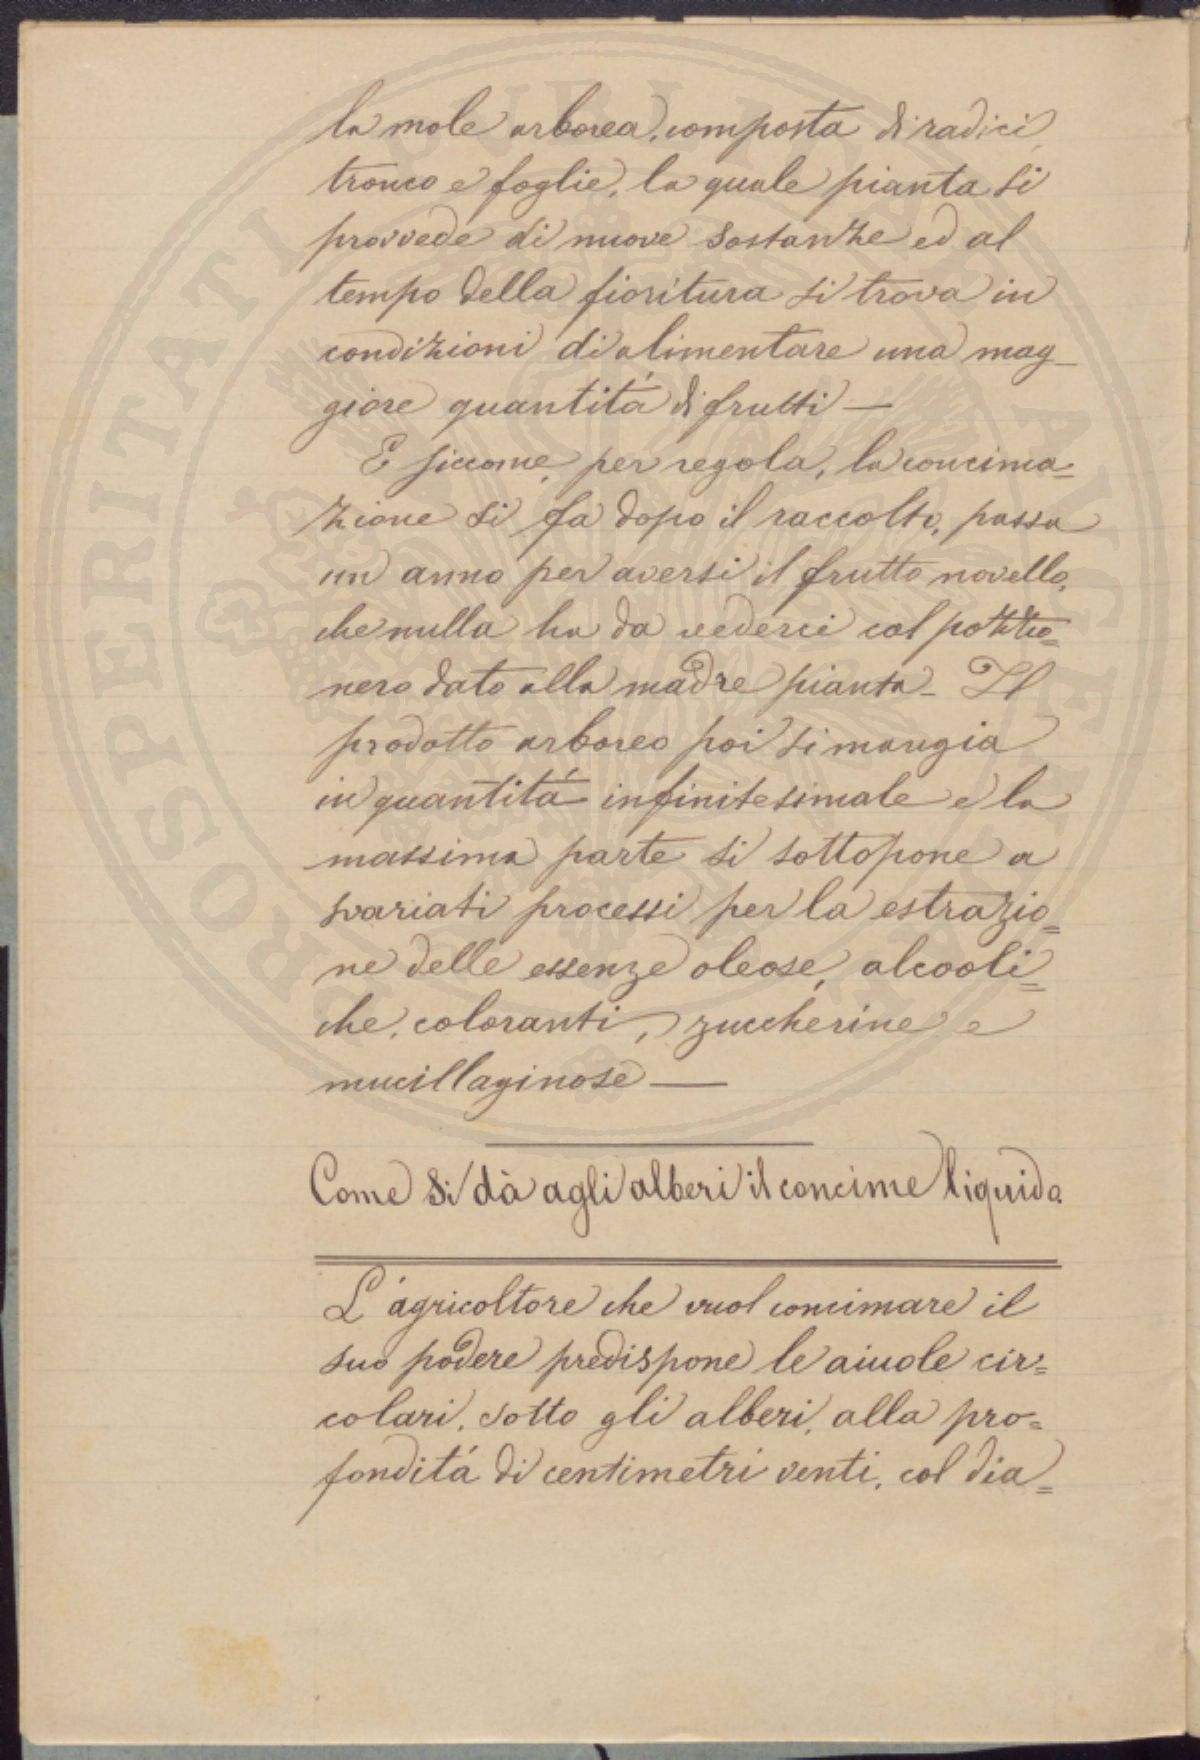 la mole arborea, composta di radici,
tronco e foglie, la quale pianta si
provvede di nuove sostanze ed al
tempo della fioritura si trova in
condizioni di alimentare una mag_
giore quantitá di frutti —
E siccome, per regola, la concima=
zione si fa dopo il raccolto, passa
un anno per aversi il frutto novello,
che nulla ha da vederci col pozzo=
nero dato alla madre pianta_ Il
prodotto arboreo poi si mangia
in quantitá infinitesimale e la
massima parte si sottopone a
svariati processi per la estrazio=
ne delle essenze oleose, alcooli=
che, coloranti, zuccherine e
mucillaginose —
Come si dà agli alberi il concime liquido.
L'agricoltore che vuol concimare il
suo podere predispone le aiuole cir=
colari, sotto gli alberi, alla pro=
fonditá di centimetri venti, col dia=
PROSPERITATI PVBLICAE AVGENDAE